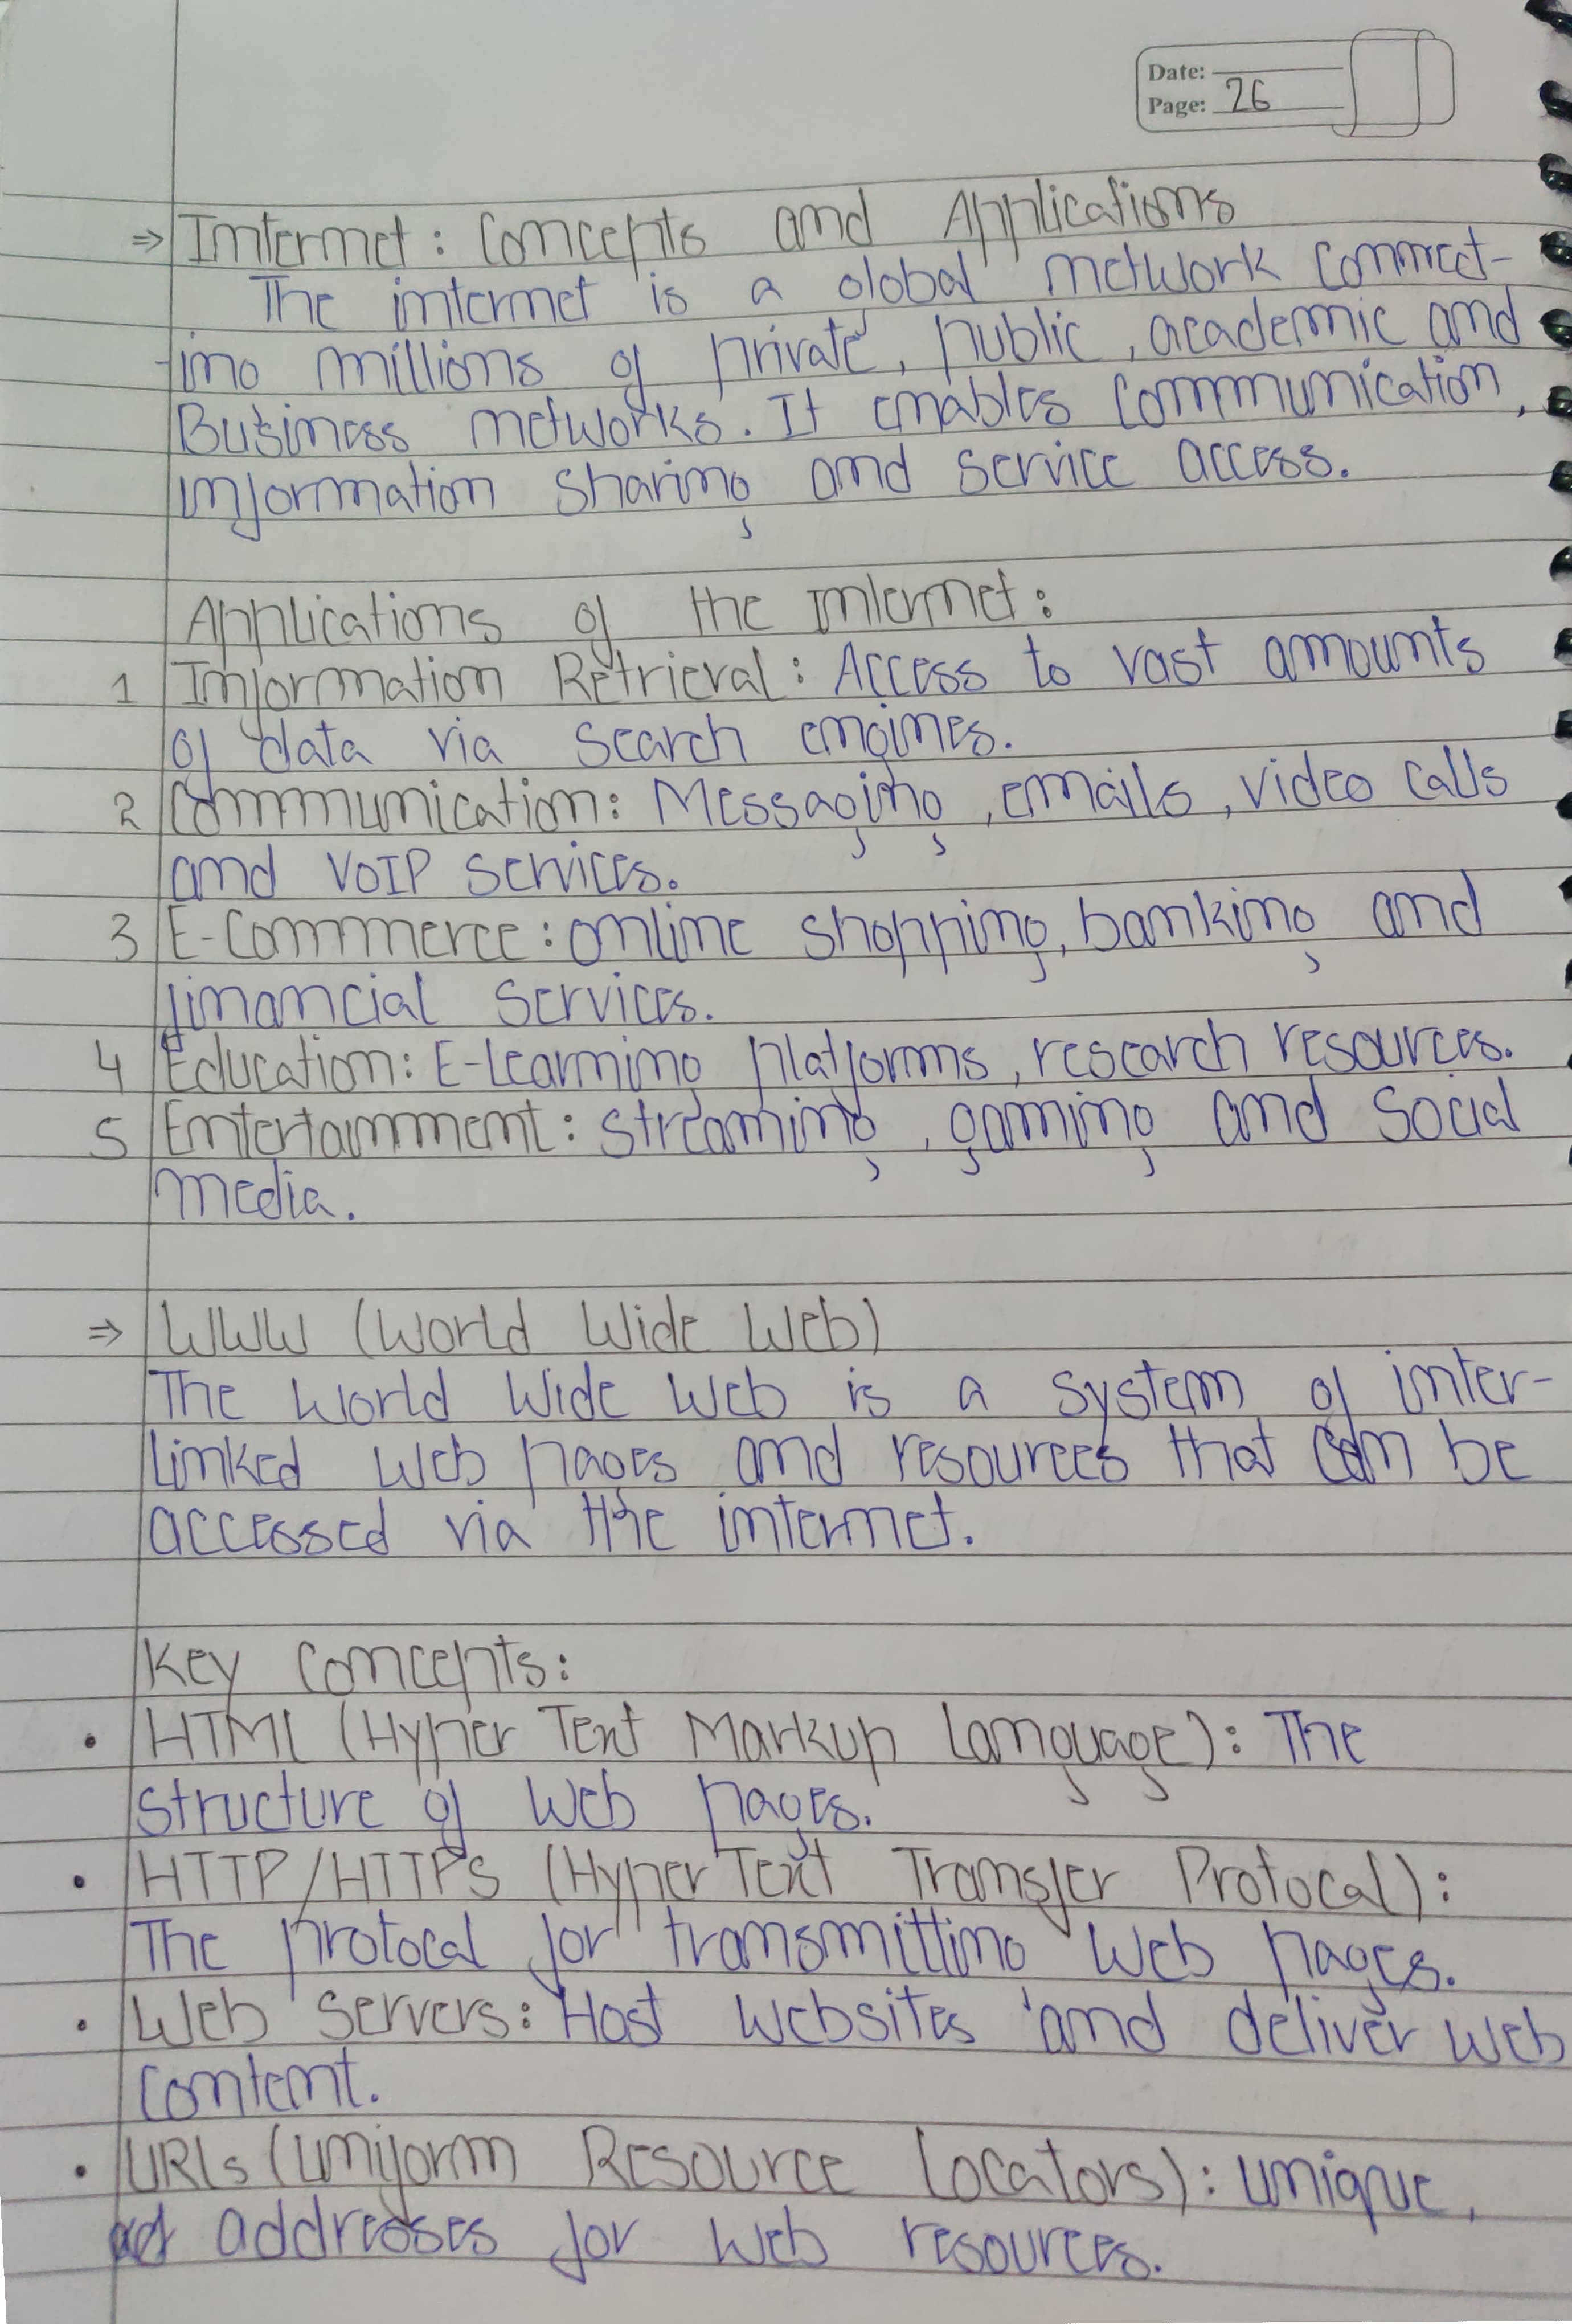 Date:
Page: 26
⇒ Internet: Concepts and Applications
The internet is a global network connect-
-ing millions of private, public, academic and
Business networks. It enables communication,
information sharing and service access.
Applications of the Internet:
1 Information Retrieval: Access to vast amounts
of data via search engines.
2 Communication: Messaging, emails, video calls
and VOIP services.
3 E-Commerce: online shopping, banking and
financial services.
4 Education: E-Learning platforms, research resources.
5 Entertainment: streaming, gaming and social
media.
⇒ WWW (World Wide Web)
The World Wide Web is a system of inter-
linked web pages and resources that can be
accessed via the internet.
Key Concepts:
• HTML (Hyper Text Markup Language): The
structure of web pages.
• HTTP/HTTPS (Hyper Text Transfer Protocal):
The protocal for transmitting web pages.
• Web Servers: Host websites and deliver web
content.
• URLs (Uniform Resource Locators): unique,
addresses for web resources.